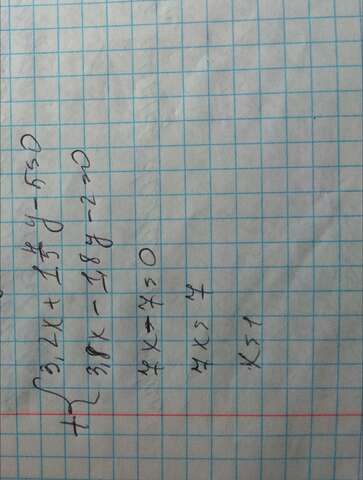 +{3,2x + 1 4/5 y - 5 = 0
3,8x - 1,8y - 2 = 0
7x - 7 = 0
7x = 7
x = 1